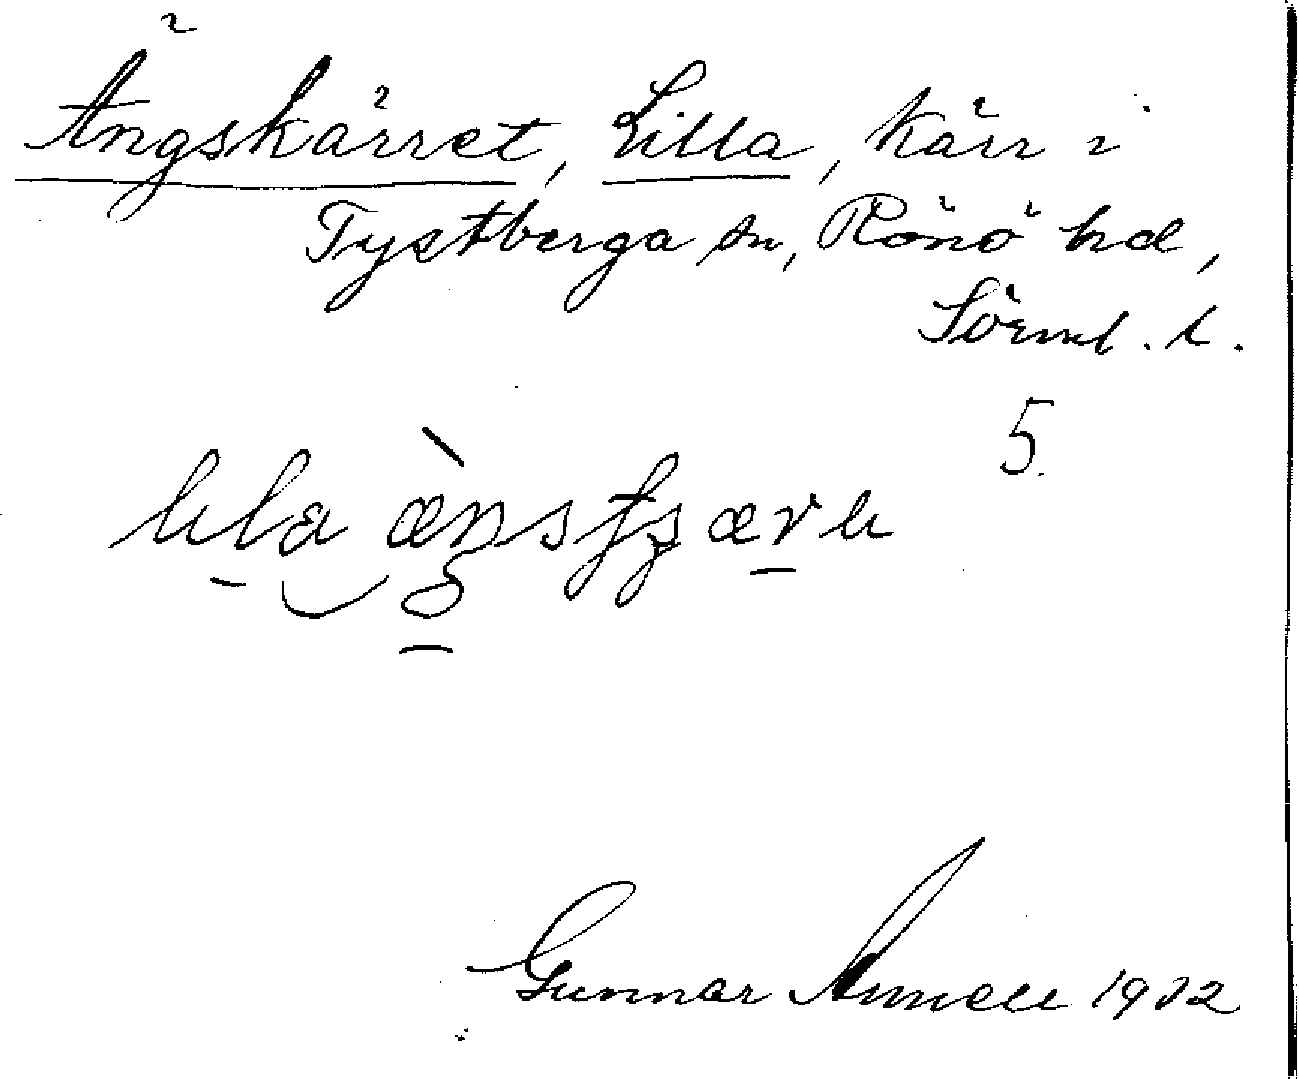 Ängskärret, Lilla, kärr i
Tystberga sn, Rönö hd,
Sörml. l.
5.
Gunnar Annell 1932